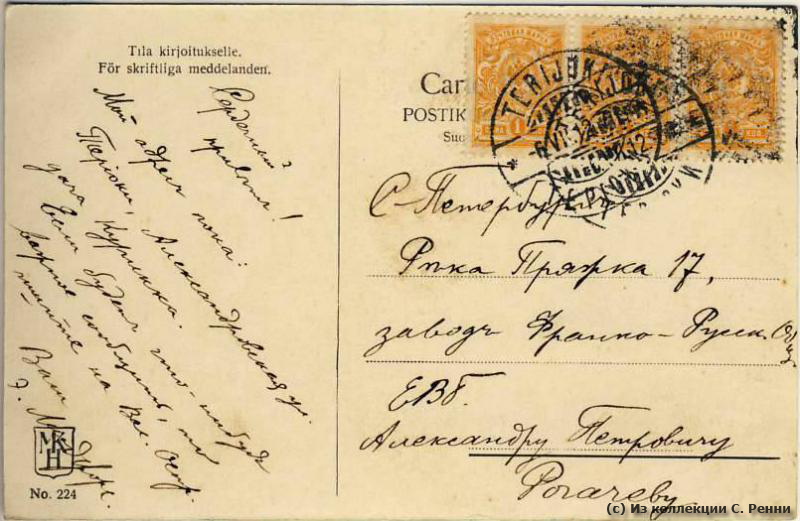 Tila kirjoitukselle.
För skriftliga meddelanden.
Сердечный
привет!
Мой адрес пока:
Теріоки, Александровская ул.
дача Куринка.
Если будет что-нибудь
важное сообщить, то
пишите на Вас. остр.
Ваш
Э.
МКН
No. 224
Car
POSTIK
Suo
TERIJOKI
С-Петербург
Рѣка Пряжка 17,
заводъ Франко-Русск. Общ
ЕВБ.
Александру Петровичу
Рогачеву
(c) Из коллекции С. Ренни